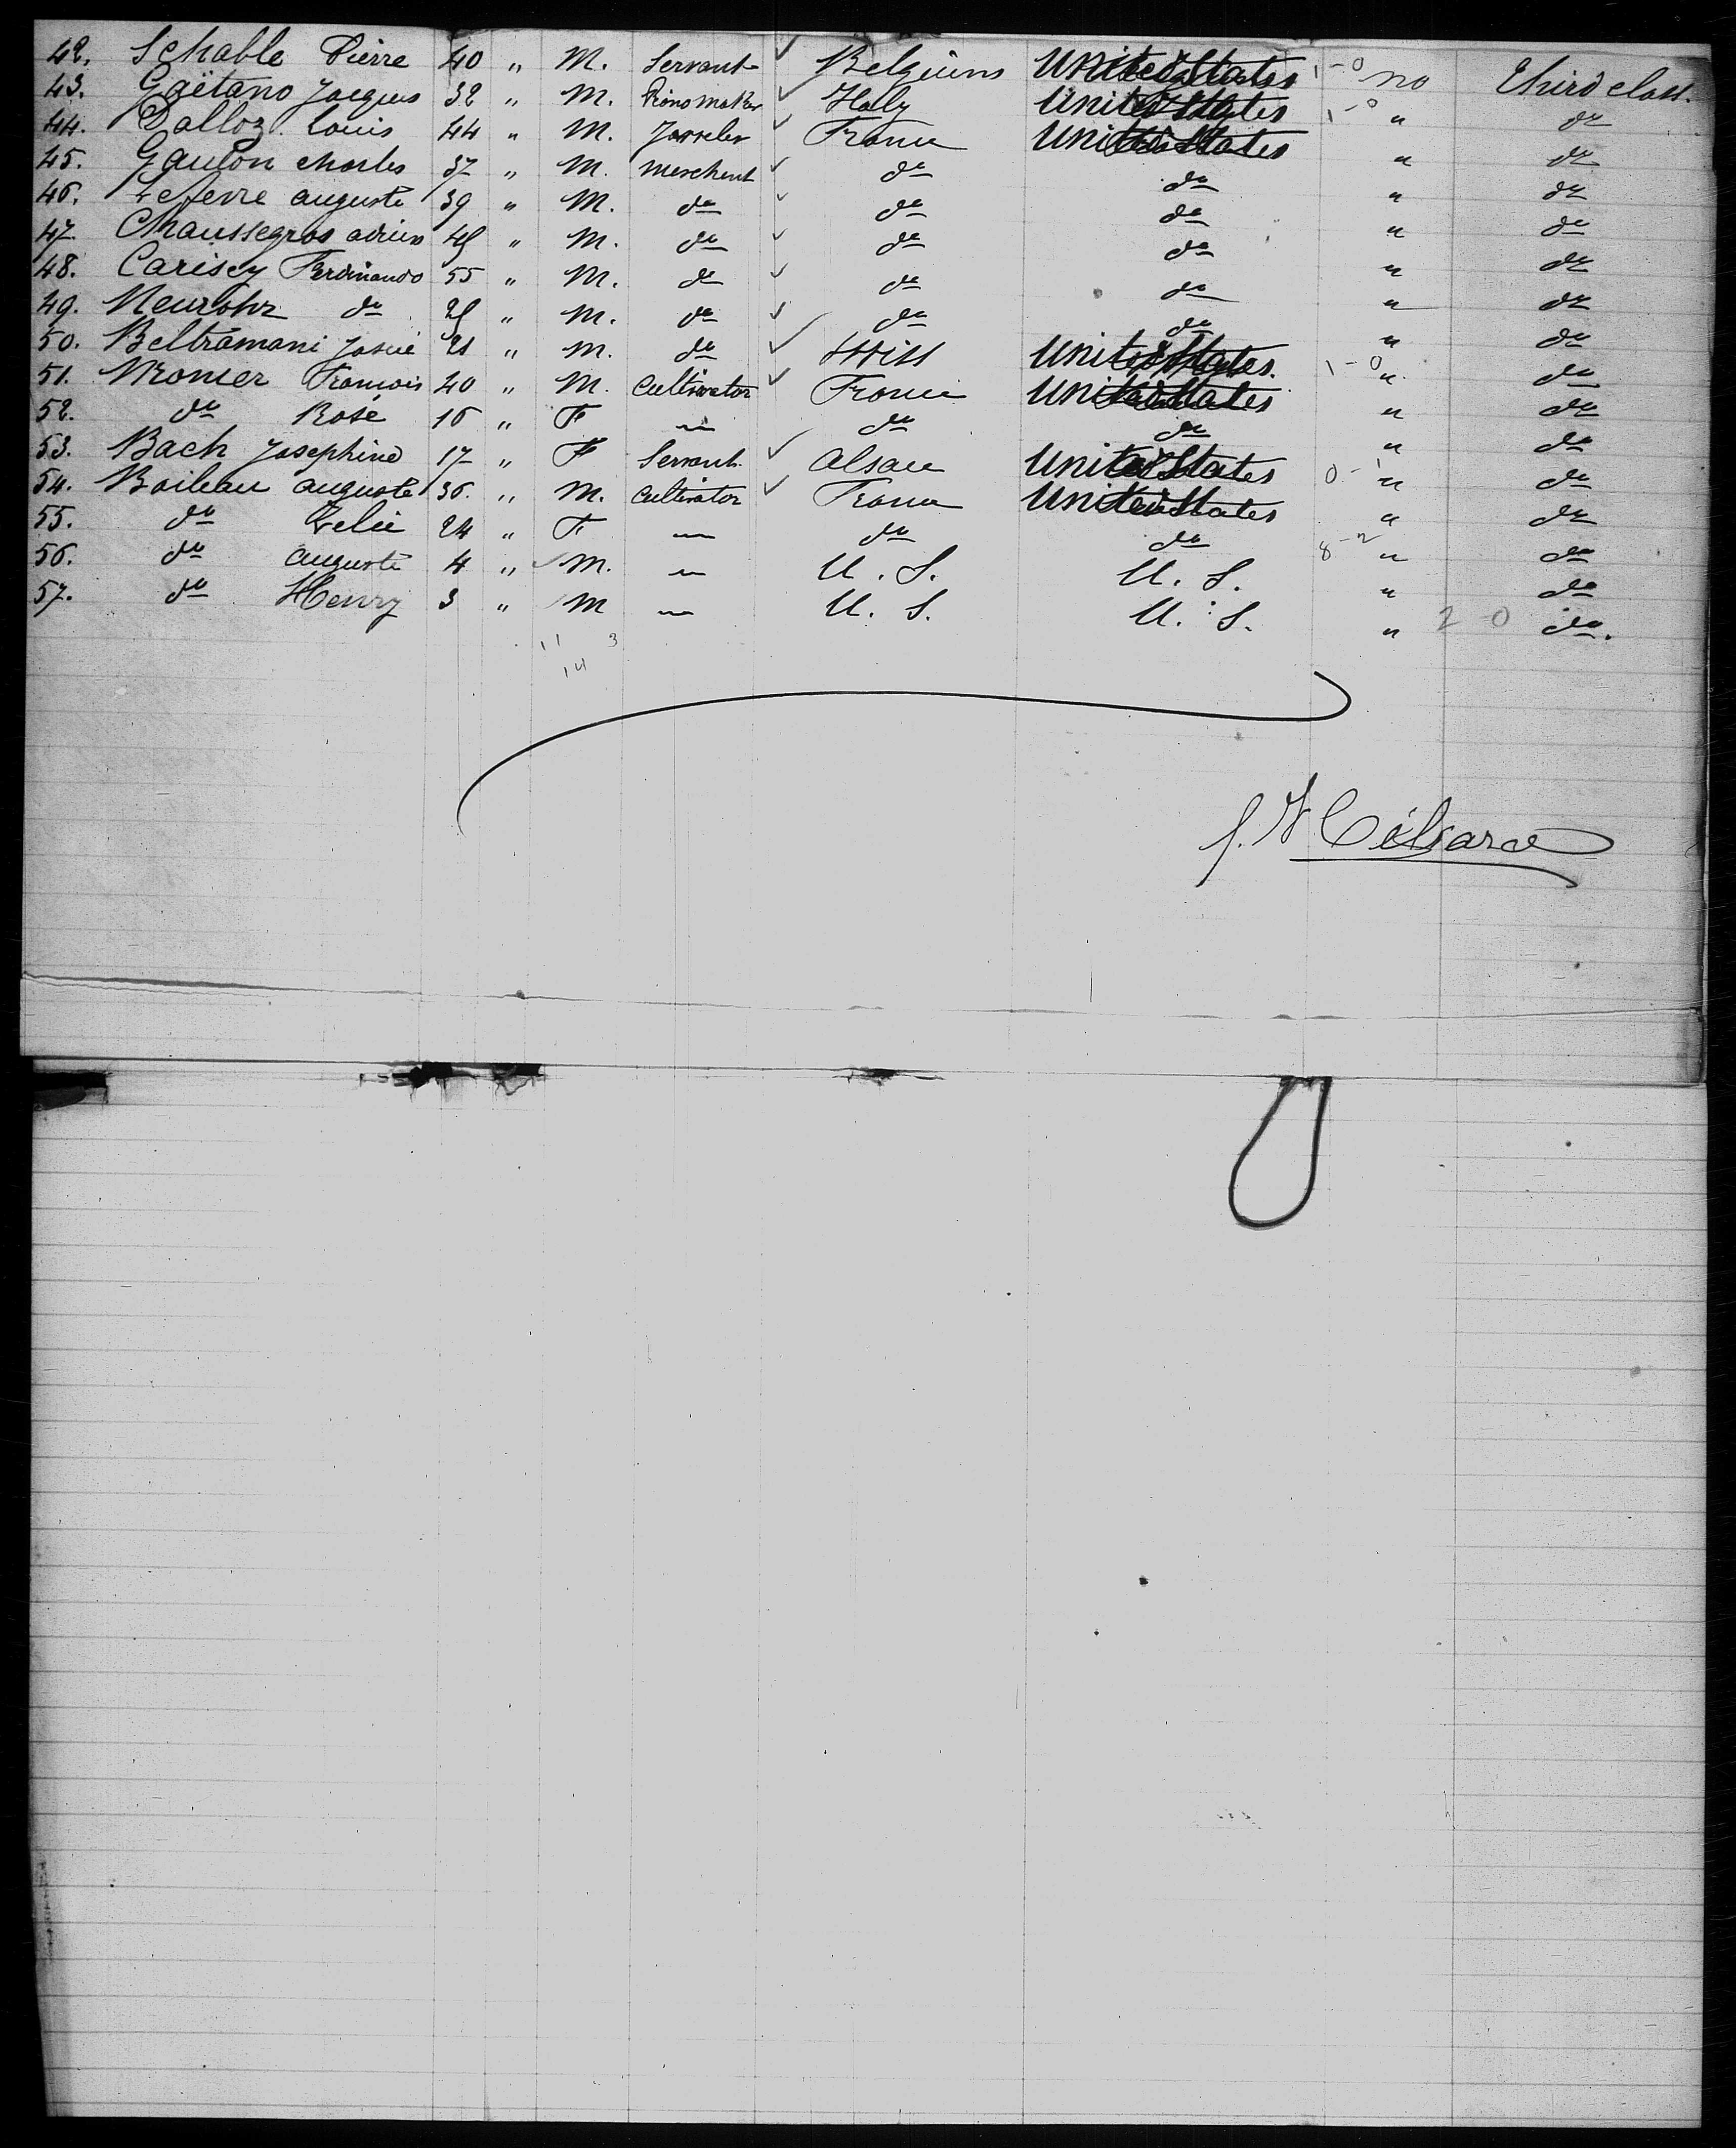 42. Schable Pierre 40 " M. Servant ✓ Belgium United States 1-0 no Third class.
43. Gaëtano Jacques 32 " M. Pionomaker ✓ Italy United States 1-0 " do
44. Dalloz. Louis 44 " M. Joweler ✓ France United States " do
45. Gaulon Charles 37 " M. Merchent ✓ do do " do
46. Lefevre auguste 39 " M. do ✓ do do " do
47. Chaussegros adrien " M. do ✓ do do " do
48. Carisey Ferdinando 55 " M. do ✓ do do " do
49. Meurohr do " M. do ✓ do do " do
50. Beltramani Josué 21 " M. do ✓ Swiss United States. 1-0 " do
51. François 40 " M. Cultivator ✓ France United States " do
52. do Rose 16 " F — do do " do
53. Bach Josephine 17 " F Servant. ✓ alsace United States 0-1 " do
54. Boileau auguste 36. " M. Cultivator ✓ France United States " do
55. do Zelie 24 " F — do do 8-2 " do
56. do auguste 4 " M. — U. S. U. S. " do
57. do Henry 3 " M — U. S. U. S. " 2 0 do.
11 3
14